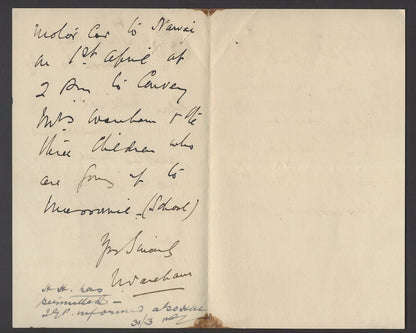 Motor Car to Nawai
on 1st April at
2 pm to Convey
Mrs Wareham & the
three Children who
are going up to
Mussoorie - (School)
Yrs Sincerely
Wareham
H.H. has
permitted -
IGP. informed
31/3